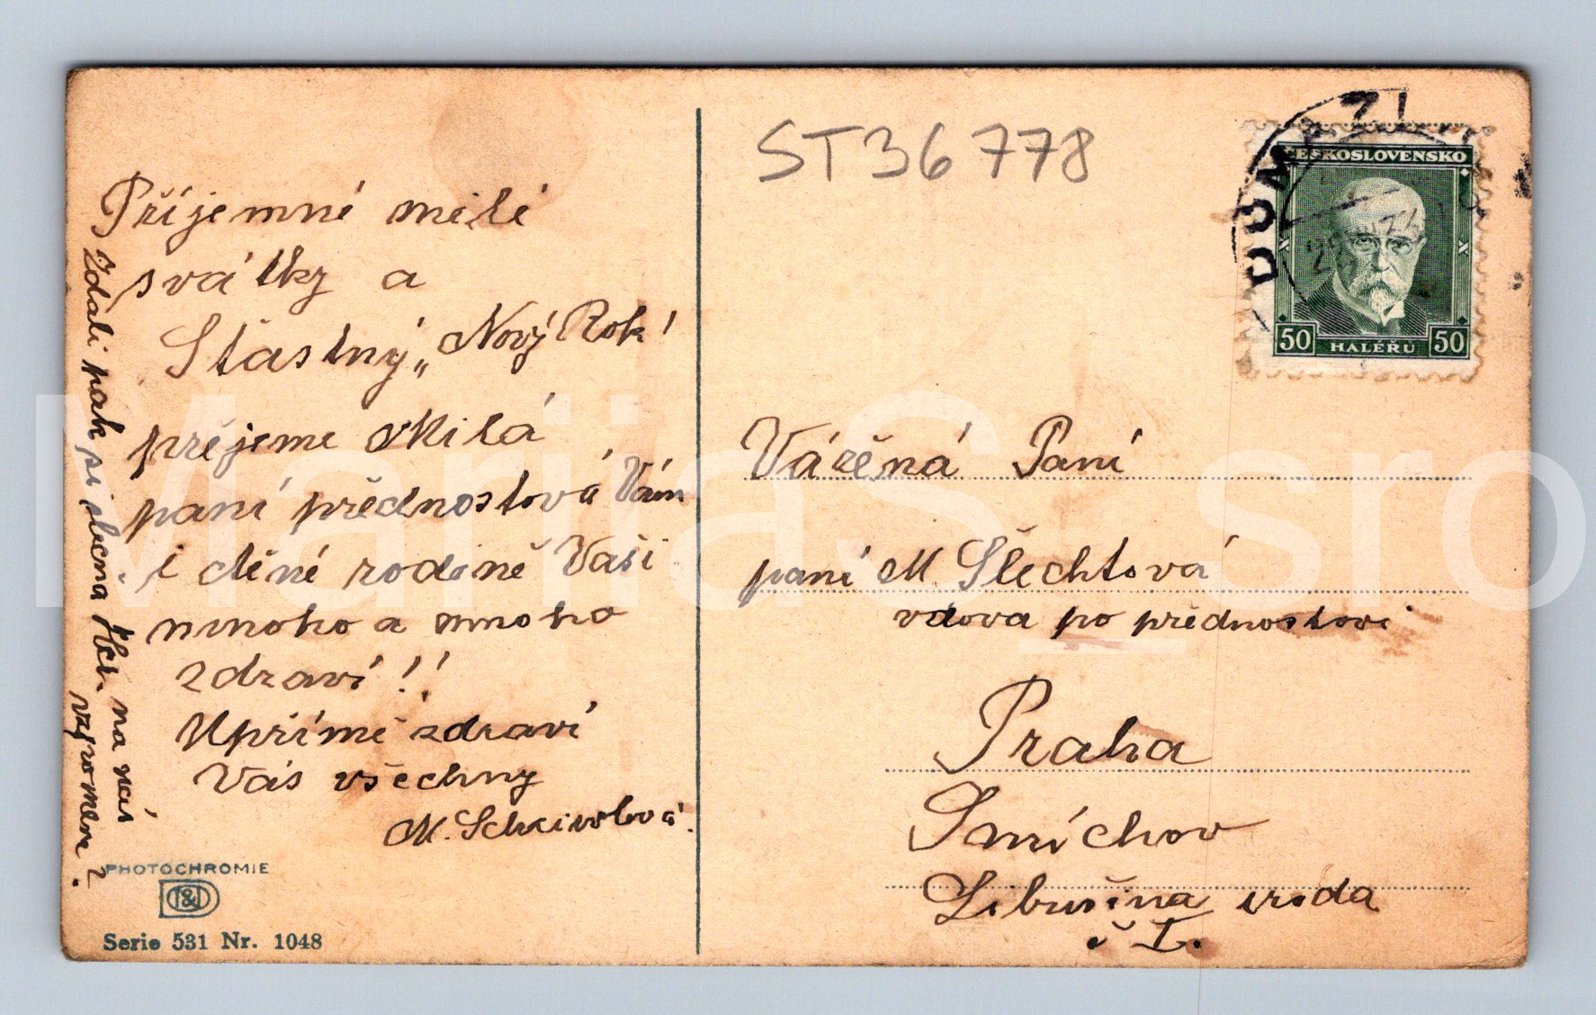 Příjemné milé
svátky a
Šťastný „Nový Rok!
přejeme Milá
paní přednostová Vám
i ctěné rodině Vaší
mnoho a mnoho
zdraví!!
Upřímě zdraví
Vás všechny
M.
Zdali pak si slečna na nás
vzpomene?
PHOTOCHROMIE
Serie 531 Nr. 1048
ST36778
DOMAŽL
ČESKOSLOVENSKO
50 HALÉŘŮ 50
Vážená Paní
paní M. Šlechtová
vdova po přednostovi
Praha
Smíchov
Libušina třída
č I.
MarijaS_sro